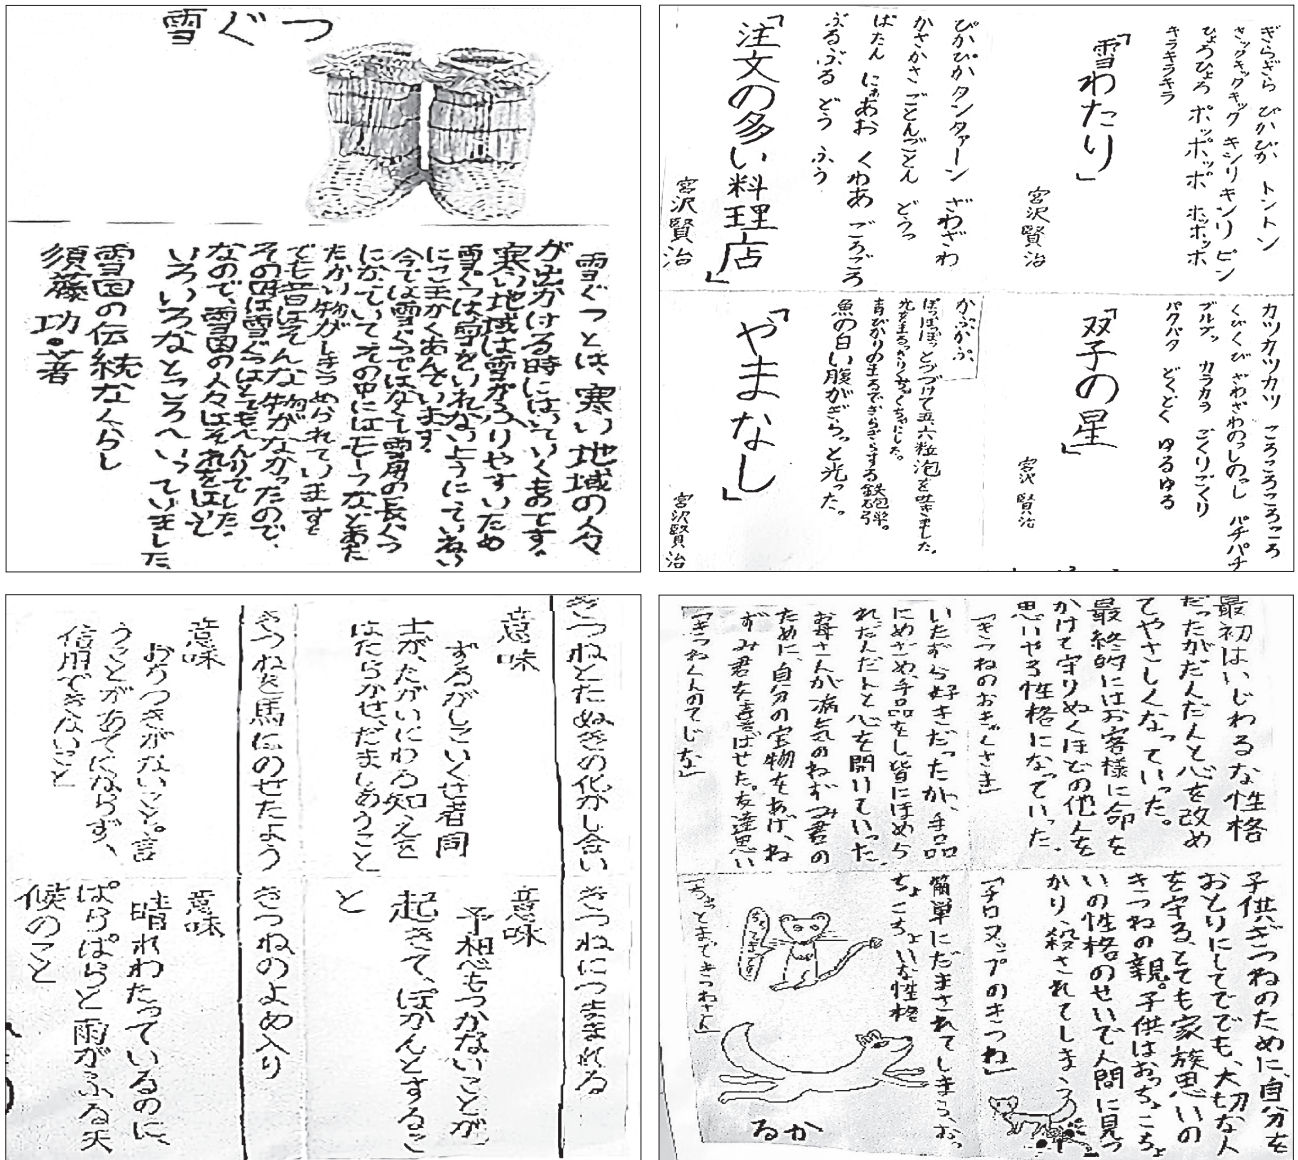 雪ぐつ
雪ぐつとは、寒い地域の人々
が出かける時にはいていくものです。
寒い地域は雪がふりやすいため
雪ぐつは雪をいれないようにていねい
にこまかくあんでいます。
今では雪ぐつではなくて雪用の長ぐつ
にかていてその中にはモーフなどあた
たかい物がしきつめられています。
でも昔はそんな物がなかったので、
その時は雪ぐつはとてもべんりでした。
なので、雪国の人々はそれをはいて
いろいろなところへいっていました
雪国の伝統なくらし
須藤功・著
ぎらぎら ぴかぴか トントン
キックキックキック キシリキシリ ピン
ひょろひょろ ポッポッポ ポッポッポ
キラキラキラ
「雪わたり」
宮沢賢治
ぴかぴかタンタァーン ざわざわ
かさかさ ごとんごとん どうっ
ばたん にゃあお くわあ ごろごろ
ぶるぶる どう ふう
「注文の多い料理店」
宮沢賢治
カツカツカツ ころころころっころ
くびくび ざわざわのしのっし パチパチ
ブルブッ カラカラ ごくりごくり
パタパタ どくどく ゆるゆる
「双子の星」
宮沢賢治
かぷかぷ
ぽっぽぽっとつづけて五六粒泡を吐きました。
光をまるっきりくちゃくちゃにした。
青びかりのまるでぎらぎらする鉄砲弾。
魚の白い腹がぎらっと光った。
「やまなし」
宮沢賢治
きつねとたぬきの化かし合い
意味
ずるがしこいくせ者同
士が、たがいにわる知えを
はたらかせ、だましあうこと
きつねを馬にのせたよう
意味
おちつきがないこと。言
うことがあてにならず、
信用できないこと
きつねにつままれる
意味
予想べもつかないことが
起きて、ぽかんとするこ
と
きつねのよめ入り
意味
晴れわたっているのに、
ぱらぱらと雨がふる天
候のこと
最初はいじわるな性格
だったがだんだんと心を改め
てやさしくなっていった。
最終的にはお客様に命を
かけて守りぬくほどの他人を
思いやる性格になっていった。
「きつねのおきゃくさま」
いたずら好きだったが、手品
にめざめ、手品をし皆にほめら
れ、だんだんと心を開いていった。
お母さんが病気のねずみ君の
ために、自分の宝物をあげ、ね
ずみ君を喜ばせた。友達思い
「きつねくんのてじな」
子供ぎつねのために、自分を
おとりにしてででも、大切な人
を守る、とても家族思いの
きつねの親。子供はおっちょこちょ
いの性格のせいで人間に見つ
かり、殺されてしまう
「チロヌップのきつね」
簡単にだまされてしまう、おっ
ちょこちょいな性格
「ちょっとまってきつねさん」
るか